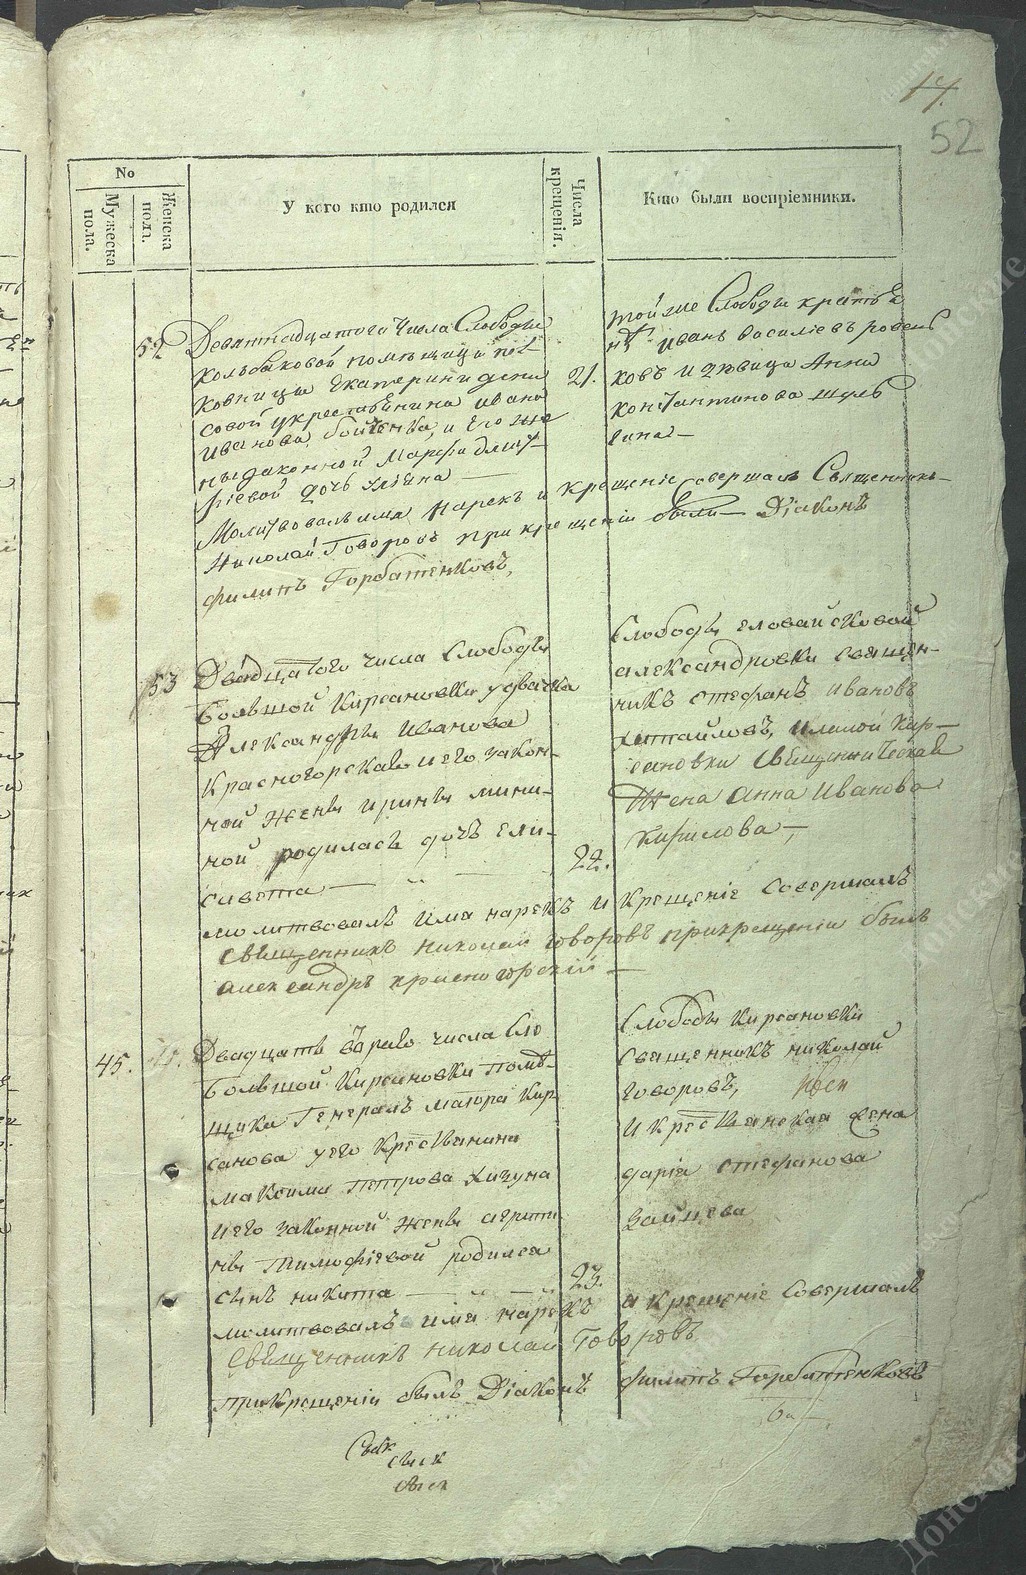 17.
52
No
Мужеска пола.
Женска пола.
У кого кто родился
Числа крещенія.
Кто были воспріемники.
52
Девятнадцатого Числа Слободы
помѣщицы пол-
ковницы Екатерины дени
совой укрестьянина ивана
Иванова бойченка, и его же
ны законной Марфы Дмит-
ріевой дочь
21.
той же Слободы
иванъ василіевъ
ковъ и двица Анна
константинова
гина
Молитвовалъ имя нарекъ и крещеніе совершалъ Священникъ
Николай Говоровъ при крещеніи были Діаконъ
филипъ Горбатенковъ,
53
Двадцатого числа Слободы
Большой Кирсановки удьячка
Александра Иванова
Красногорскаго и его закон-
ной жены ирины мини-
ной родилась дочь ели-
савета
22.
Слободы еловайсковой
александровки священ-
никъ стефанъ ивановъ
михайловъ, и малой кир-
сановки Священническая
Жена Анна Иванова
кирилова
молитвовалъ имя нарекъ и Крещеніе Совершалъ
Священникъ николай говоровъ прикрещеніи былъ
александръ красногорскій
45.
Двадцать втораго числа сло
Большой Кирсановки помѣ-
щика Генералъ маіора Кир
санова уего Крестьянина
максима петрова
и его законной жены
ны тимофіевой родился
сынъ никита
23.
Слободы Кирсановки
священникъ николай
говоровъ,
и крестьянская жена
дарія стефанова
зайцева
молитвовалъ имя нарекъ и крещеніе Совершалъ
Священникъ николай Говоровъ
прикрещеніи былъ Діаконъ филипъ Горбатенковъ